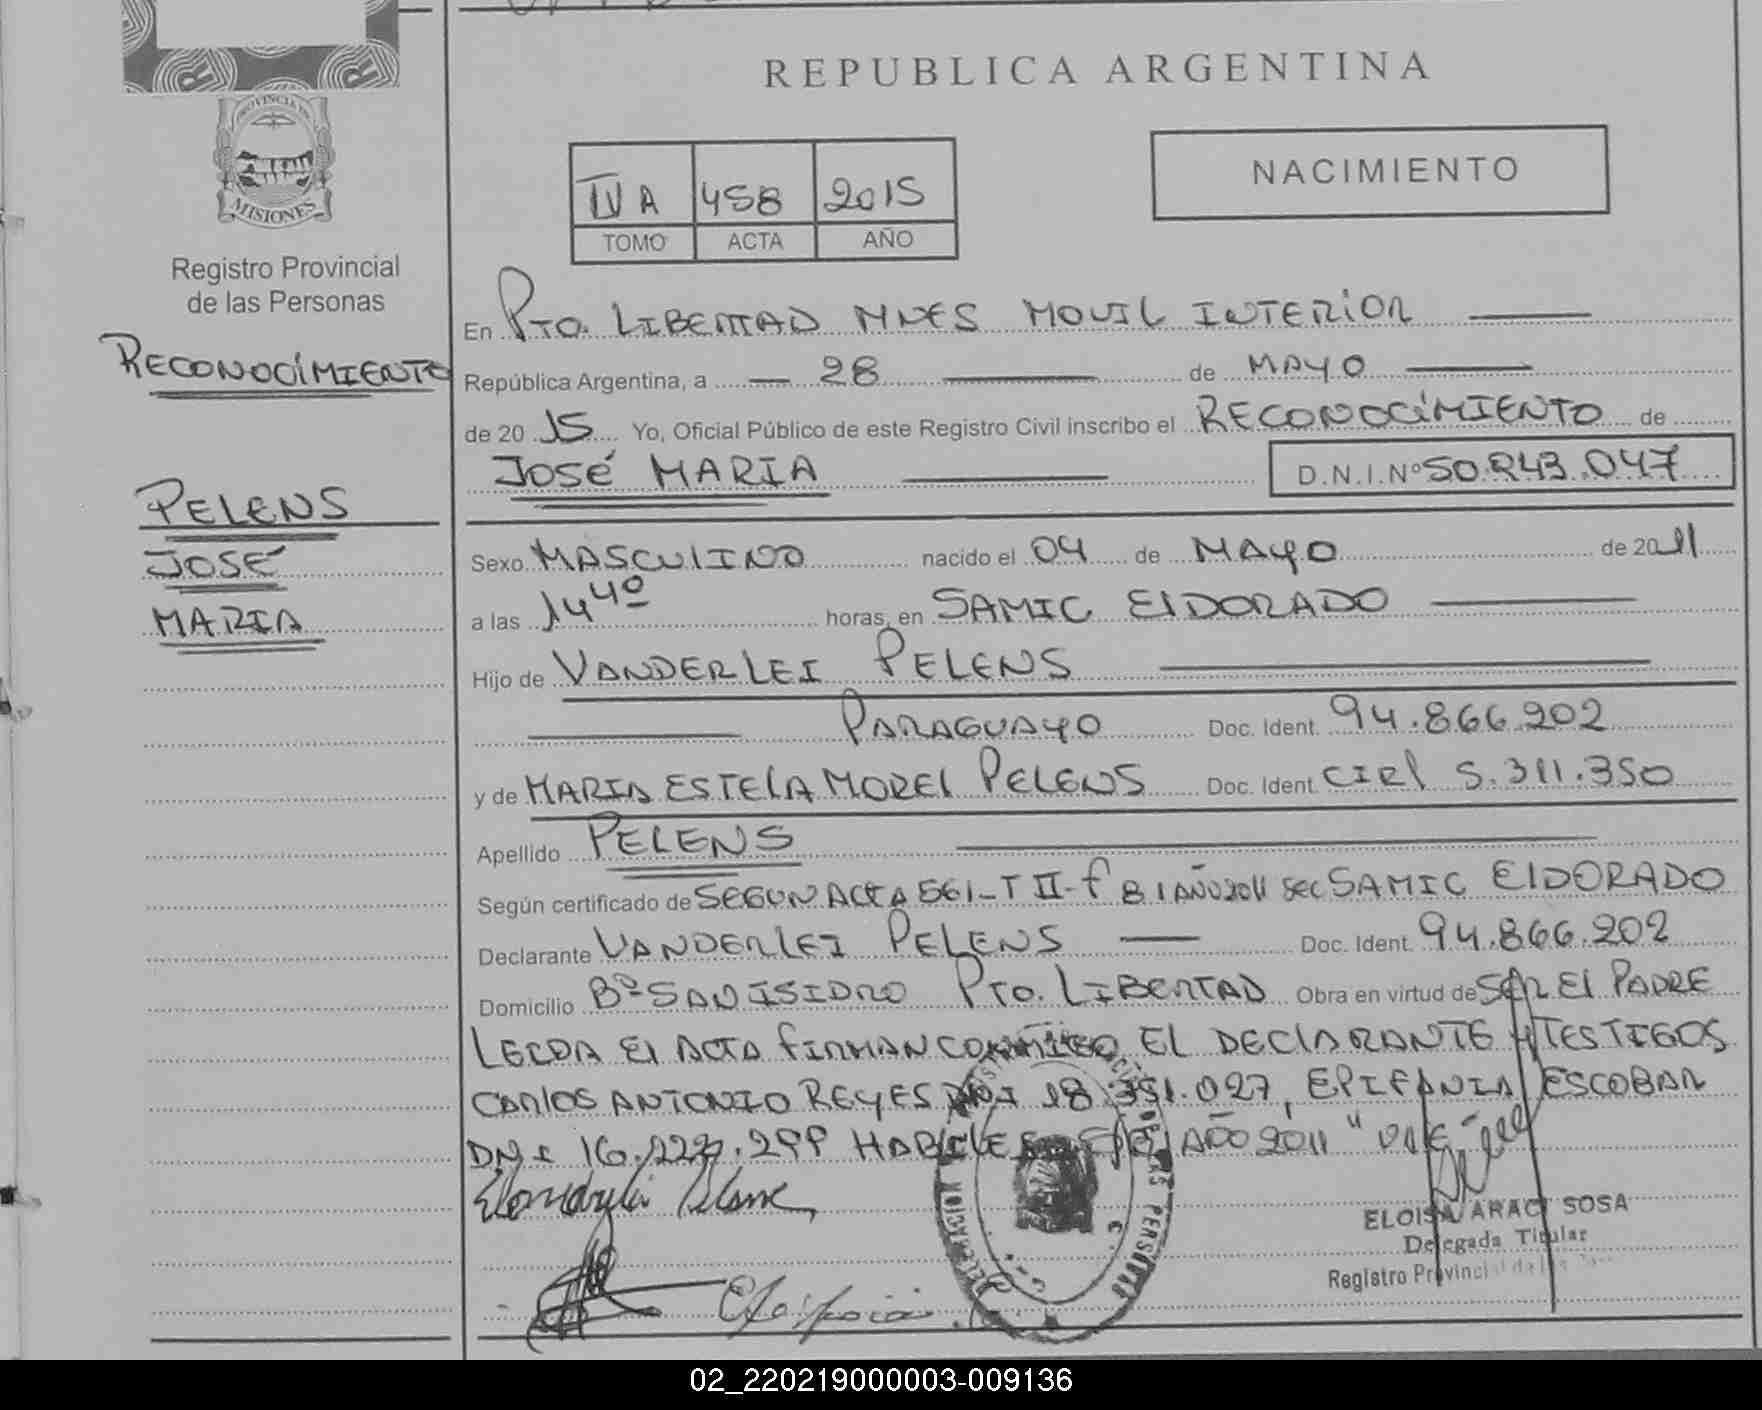 REPUBLICA ARGENTINA
NACIMIENTO
IV A 458 2015
TOMO ACTA AÑO
MISIONES
Registro Provincial
de las Personas
RECONOCIMIENTO
PELENS
JOSÉ
MARIA
En PTO. LIBERTAD MNES MOVIL INTERIOR
República Argentina, a 28 de MAYO
de 20 15 Yo, Oficial Público de este Registro Civil inscribo el RECONOCIMIENTO de
JOSÉ MARIA D.N.I.Nº 50.243.047
Sexo MASCULINO nacido el 04 de MAYO de 2011
a las 14 40 horas, en SAMIC ElDORADO
Hijo de VANDERLEI PELENS
PARAGUAYO Doc. Ident. 94.866.202
y de MARIA ESTElA MOREl PELENS Doc. Ident. CIRl 5.311.350
Apellido PELENS
Según certificado de SEGUN ACTA 561-T II-f 81 AÑO 2011 SEC SAMIC ElDORADO
Declarante VANDERLEI PELENS Doc. Ident. 94.866.202
Domicilio Bº SAN ISIDRO PTO. LIBERTAD Obra en virtud de SER El PADRE
LEIDA El ACTA FIRMAN CONMIGO EL DEClARANTE Y TESTIGOS
CARlOS ANTONIO REYES DNI 18.351.027, EPIFANIA ESCOBAR
DNI HABILES AÑO 2011 "VALE"
ELOISA ARACI SOSA
Delegada Titular
Registro Provincial de las
02_220219000003-009136